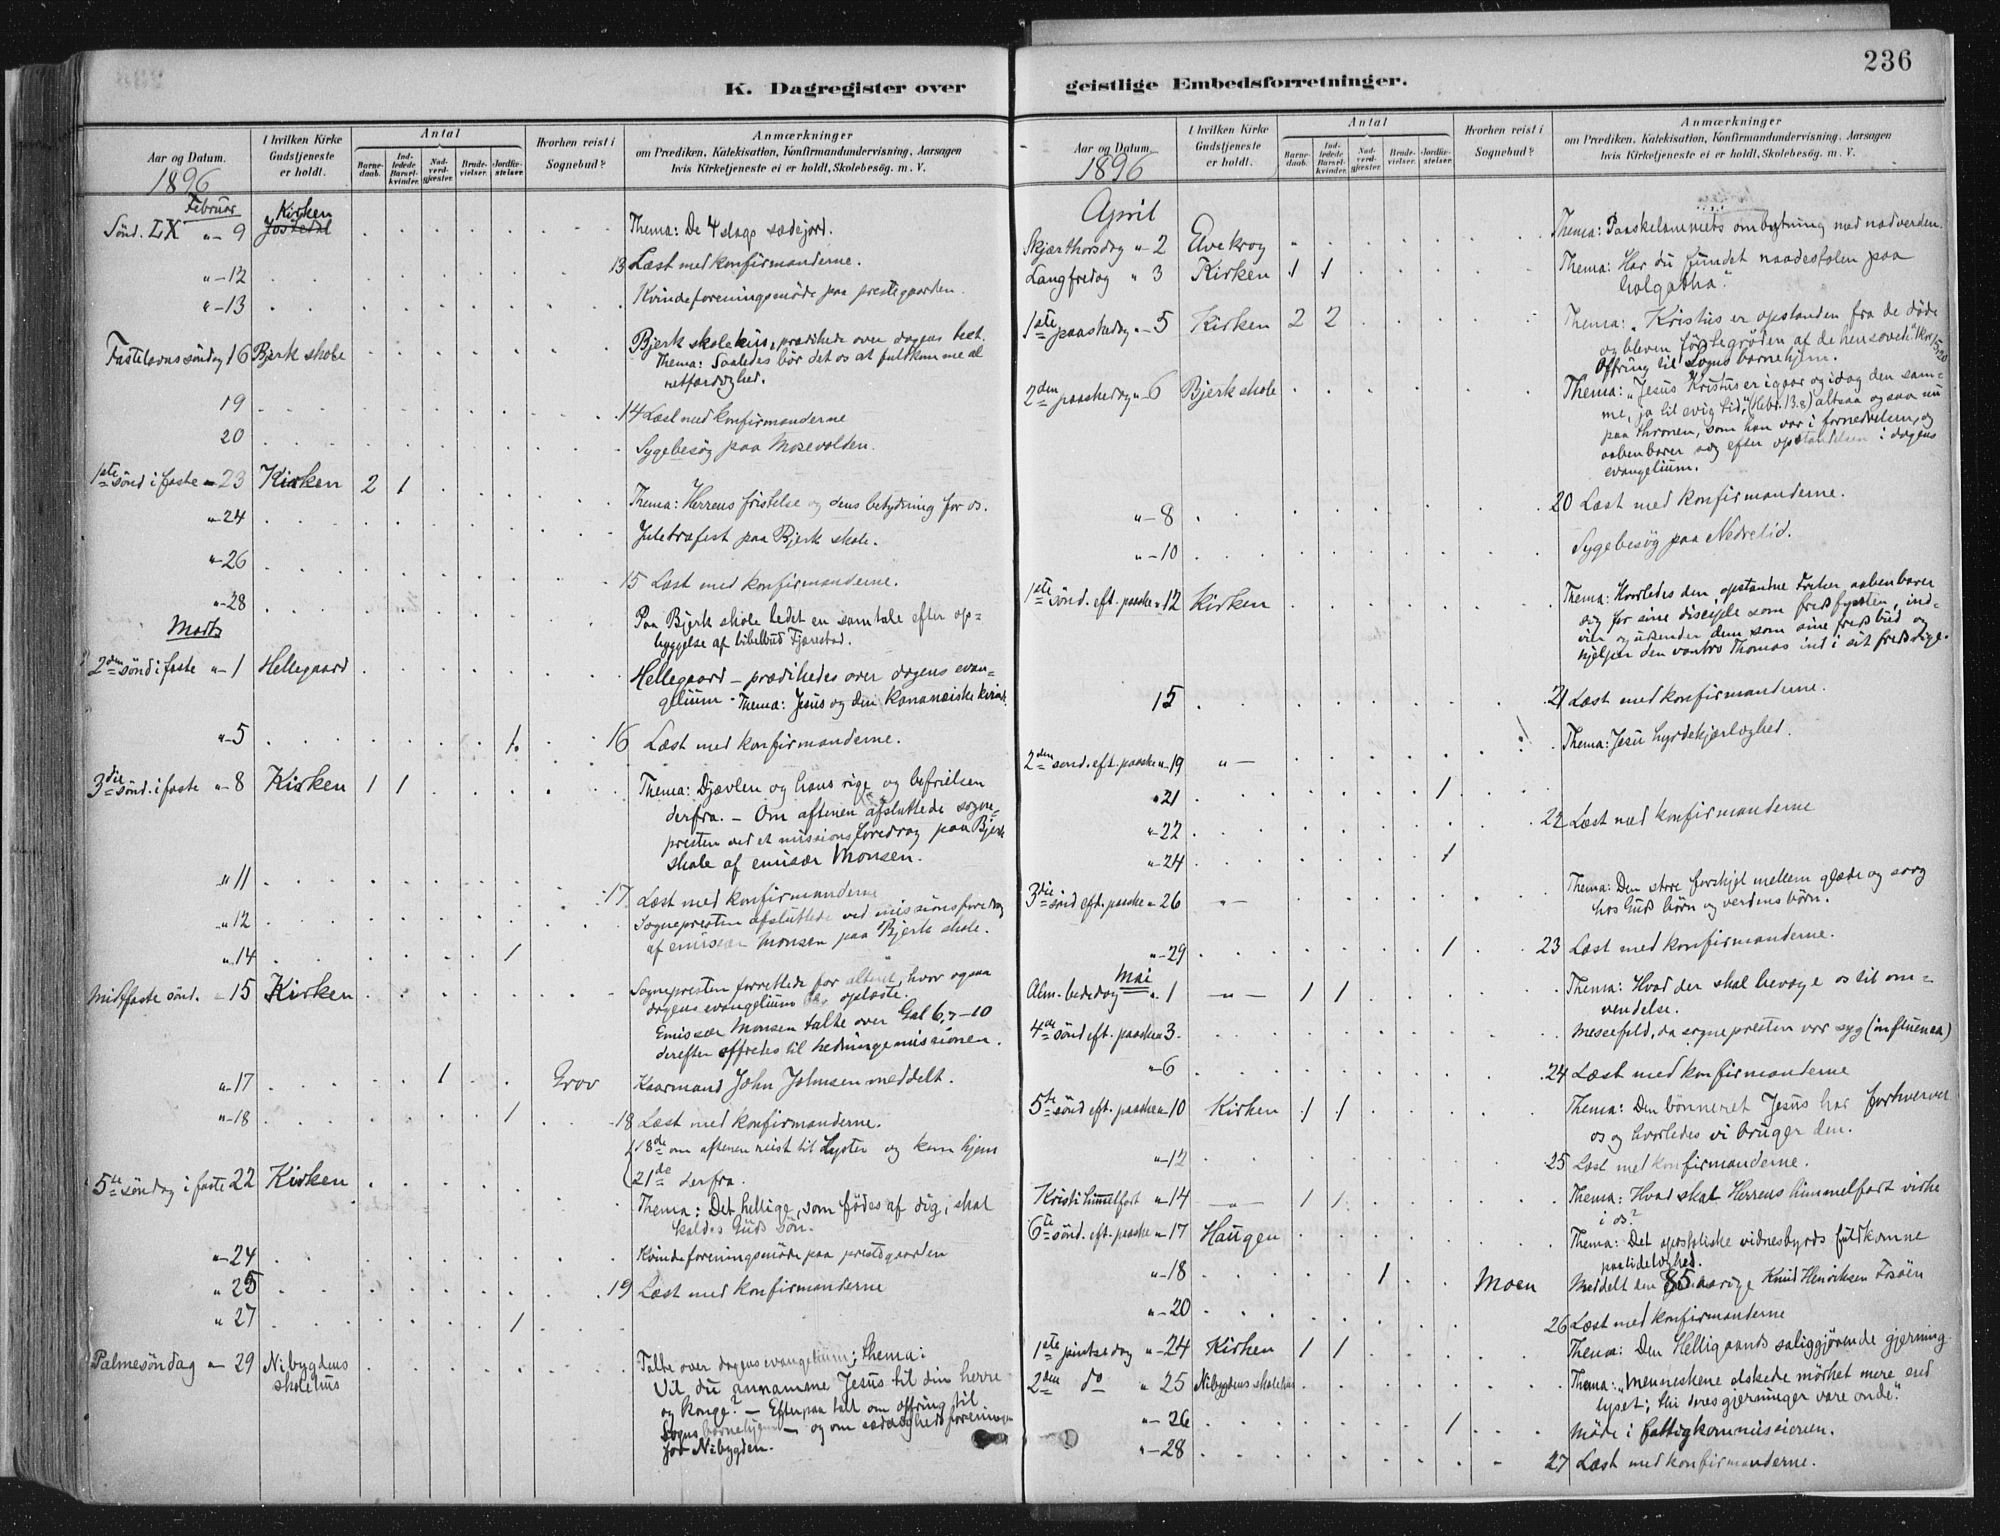 236
K. Dagregister over geistlige Embedsforretninger.
Aar og Datum.
I hvilken Kirke Gudstjeneste er holdt.
Antal
Barne-daab.
Ind-ledede Barsel-kvinder.
Nad-verd-gjæster.
Brude-vielser.
Jordfæ-stelser.
Hvorhen reist i Sognebud?
Anmærkninger
om Prædiken, Katekisation, Konfirmandundervisning, Aarsagen
hvis Kirketjeneste ei er holdt, Skolebesøg. m. V.
1896
Februar
Sønd. LX " 9 Kirken Jostedal Thema: De 4 slags sædejord.
"-12 13 Læst med konfirmanderne.
"-13 Kvindeforeningsmøde paa prestegaarden.
Fastelavnssøndag 16 Bjerk skole Bjerk skolehus, prædikede over dagens text.
Thema: Saaledes bør det os at fuldkomme al
retfærdighed.
19 14 Læst med konfirmanderne
20 Sygebesøg paa Mosevolden.
1ste sønd i faste - 23 Kirken 2 1 Thema: Herrens fristelse og dens betydning for os.
"-24 Juletræfest paa Bjerk skole.
"-26 15 Læst med konfirmanderne.
"-28 Paa Bjerk skole ledet en samtale efter op-
byggelse af bibelbud Fjærestad.
Marts
2den sønd i faste " 1 Hellegaard Hellegaard - prædikedes over dagens evan-
gelium - Thema: Jesus og den kananæiske kvinde.
"-5 1. 16 Læst med konfirmanderne.
3die sønd. i faste " 8 Kirken 1 1 Thema: Djævlen og hans rige og befrielsen
derfra. - Om aftenen afsluttede sogne-
presten ved et missionsforedrag paa Bjerk
skole af emisær Monsen.
" 11 17 Læst med konfirmanderne
"-12 Sognepresten afsluttede ved missionsforedrag
af emisær Monsen paa Bjerk skole.
"-14 1
Midfaste sønd. - 15 Kirken Sognepresten forrettede for alteret, hvor ogsaa
dagens evangelium oplæste.
Emissær Monsen talte over Gal 6,7-10
derefter offredes til hedningemissionen.
"-17 1 Grov Kaarmand John Johnsen meddelt.
"-18 1 18 Læst med konfirmanderne.
18de om aftenen reist til Lyster og kom hjem
21de derfra.
5te søndag i faste 22 Kirken Thema: Det hellige, som fødes af dig, skal
kaldes Guds søn.
"-24 Kvindeforeningsmøde paa prestegaarden
" 25 19 Læst med konfirmanderne
" 27 1
Palmesøndag - 29 Nibygdens skolehus Talte over dagens evangelium; thema:
Vil du annamme Jesus til din herre
og konge? - Efterpaa talt om offring til
Sogns barnehjem - og om sædelighedsforeningen
for Nibygden.
Aar og Datum
I hvilken Kirke Gudstjeneste er holdt.
Antal
Barne-daab.
Ind-ledede Barsel-kvinder.
Nad-verd-gjæster.
Brude-vielser.
Jordfæ-stelser.
Hvorhen reist i Sognebud?
Anmærkninger
om Prædiken, Katekisation, Konfirmandundervisning, Aarsagen
hvis Kirketjeneste ei er holdt, Skolebesøg. m. V.
1896
April
Skjærthorsdag " 2 Elvekrog Thema: Paaskelammets ombytning med nadverden.
Langfredag " 3 Kirken 1 1 Thema: Har du fundet naadestolen paa
Golgatha?
1ste paaskedag - 5 Kirken 2 2 Thema: "Kristus er opstanden fra de døde
og bleven førstegrøden af de hensovede." 1 Kor 15,20
Offring til Sogns barnehjem.
2den paaskedag " 6 Bjerk skole Thema: "Jesus Kristus er igaar og idag den sam-
me, ja til evig tid," (Hebr. 13.8) altsaa ogsaa nu
paa thronen, som han var i fornedrelsen, og
aabenbarer sig efter opstandelsen i dagens
evangelium.
"-8 20 Læst med konfirmanderne.
"-10 Sygebesøg paa Nedrelid.
1ste sønd. eft. paaske " 12 Kirken Thema: Hvorledes den opstandne Frelser aabenbarer
sig for sine disciple som fredsfyrsten, ind-
vier og udsender dem som sine fredsbud og
hjelper den vantro Thomas ind i sit fredsrige.
15 21 Læst med konfirmanderne.
2den sønd. eft. paaske " 19 "- Thema: Jesu hyrdekjærlighed.
" 21 1
"-22 22 Læst med konfirmanderne
"-24 1
3die sønd eft. paaske " 26 -"- Thema: Den store forskjel mellem glæde og sorg
hos Guds børn og verdens børn.
"-29 1 23 Læst med konfirmanderne.
Mai
Alm. bededag " 1 -"- 1 1 Thema: Hvad der skal bevæge os til om-
vendelse.
4de sønd eft. paaske " 3. Messefald, da sognepresten var syg (influensa)
"-6 24 Læst med konfirmanderne
5te sønd eft. paaske " 10 Kirken 1 1 Thema: Den bønneret Jesus har forhvervet
os og hvorledes vi bruger den.
"-12 25 Læst med konfirmanderne.
Kristi himmelfart " 14 -"- 1 1 Thema: Hvad skal Herrens himmelfart virke
i os?
6te sønd. eft. paaske " 17 Haugen Thema: Det apostoliske vidnesbyrds fuldkomne
paalidelighed.
"-18 1 Moen Meddelt den 85 aarige Knud Henriksen Fosøen
"-20 26 Læst med konfirmanderne
1ste pintsedag " 24 Kirken 1 1 Thema: Den Helligaands saliggjørende gjerning
2den do " 25 Nibygdens skolehus Thema: "Menneskene elskede mørket mere end
lyset; thi deres gjerninger vare onde."
"-26 1 Møde i fattigkommissionen.
"-28 27 Læst med konfirmanderne.